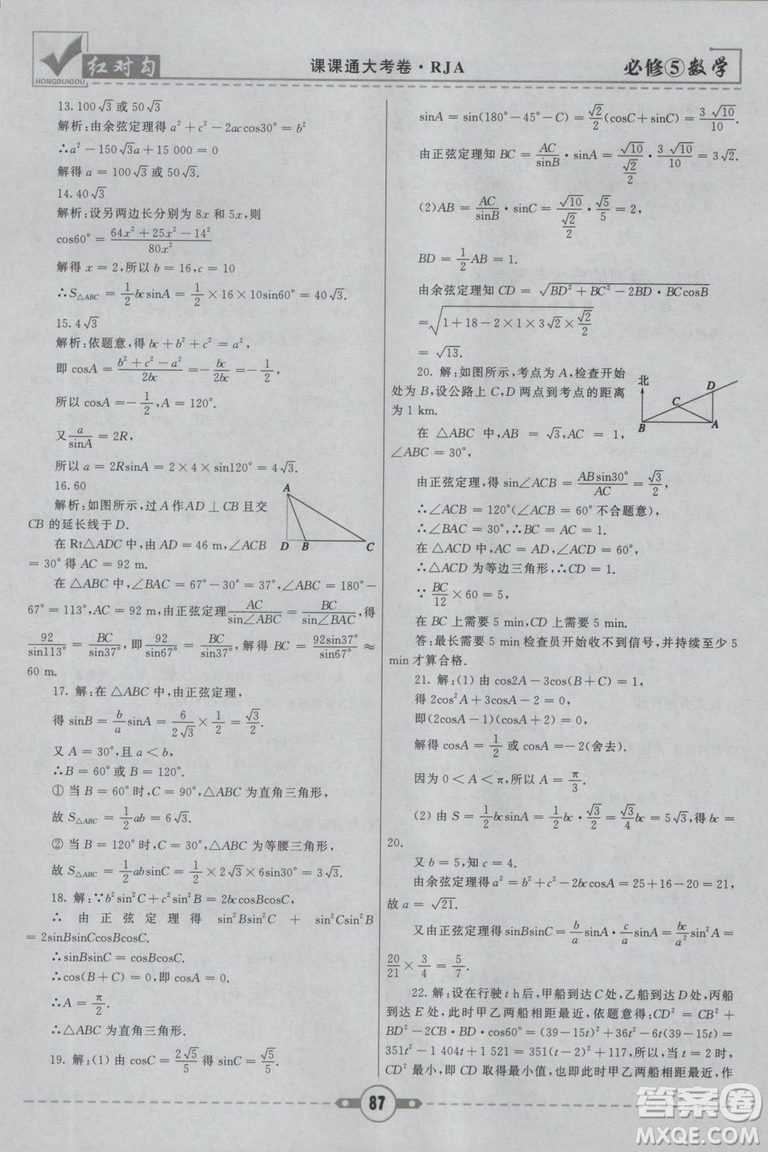 红对勾
HONGDUIGOU
课课通大考卷·RJA
必修⑤数学
13.100√3或50√3
解析:由余弦定理得a²+c²-2accos30°=b²
∴a²-150√3a+15 000=0
解得a=100√3或50√3.
14.40√3
解析:设另两边长分别为8x和5x,则
cos60°=(64x²+25x²-14²)/(80x²)
解得x=2,所以b=16,c=10
∴S△ABC=1/2bcsinA=1/2×16×10sin60°=40√3.
15.4√3
解析:依题意,得b²+c²-a²=-bc,
即cosA=(b²+c²-a²)/(2bc)=-bc/(2bc)=-1/2
所以cosA=-1/2,A=120°.
又a/sinA=2R,
所以a=2RsinA=2×4×sin120°=4√3.
16.60
解析:如图所示,过A作AD⊥CB且交
CB的延长线于D.
在Rt△ADC中,由AD=46 m,∠ACB
=30°得AC=92 m.
在△ABC中,∠BAC=67°-30°=37°,∠ABC=180°-
67°=113°,AC=92 m,由正弦定理AC/sin∠ABC=BC/sin∠BAC,得
92/sin113°=BC/sin37°,即92/sin67°=BC/sin37°,解得BC=92sin37°/sin67°≈
60 m.
A
D B C
17.解:在△ABC中,由正弦定理,
得sinB=b/a sinA=6/(2√3)×1/2=√3/2.
又A=30°,且a<b,
∴B=60°或B=120°.
①当B=60°时,C=90°,△ABC为直角三角形,
故S△ABC=1/2ab=6√3.
②当B=120°时,C=30°,△ABC为等腰三角形,
故S△ABC=1/2absinC=1/2×2√3×6sin30°=3√3.
18.解:∵b²sin²C+c²sin²B=2bccosBcosC,
∴由正弦定理得sin²Bsin²C+sin²Csin²B
=2sinBsinCcosBcosC.
∴sinBsinC=cosBcosC.
∴cos(B+C)=0,即cosA=0.
∴A=π/2.
∴△ABC为直角三角形.
19.解:(1)由cosC=2√5/5得sinC=√5/5.
sinA=sin(180°-45°-C)=√2/2(cosC+sinC)=3√10/10.
由正弦定理知BC=AC/sinB·sinA=√10/(√2/2)·3√10/10=3√2.
(2)AB=AC/sinB·sinC=√10/(√2/2)·√5/5=2,
BD=1/2AB=1.
由余弦定理知CD=√(BD²+BC²-2BD·BCcosB)
=√(1+18-2×1×3√2×√2/2)
=√13.
20.解:如图所示,考点为A,检查开始
处为B,设公路上C,D两点到考点的距离
为1 km.
在△ABC中,AB=√3,AC=1,
∠ABC=30°.
北
D
C
B A
由正弦定理,得sin∠ACB=ABsin30°/AC=√3/2,
∴∠ACB=120°(∠ACB=60°不合题意).
∴∠BAC=30°,∴BC=AC=1.
在△ACD中,AC=AD,∠ACD=60°,
∴△ACD为等边三角形,∴CD=1.
∵BC/12×60=5,
∴在BC上需要5 min,CD上需要5 min.
答:最长需要5 min检查员开始收不到信号,并持续至少5
min才算合格.
21.解:(1)由cos2A-3cos(B+C)=1,
得2cos²A+3cosA-2=0,
即(2cosA-1)(cosA+2)=0,
解得cosA=1/2或cosA=-2(舍去).
因为0<A<π,所以A=π/3.
(2)由S=1/2bcsinA=1/2bc·√3/2=√3/4bc=5√3,得bc=
20.
又b=5,知c=4.
由余弦定理得a²=b²+c²-2bccosA=25+16-20=21,
故a=√21.
又由正弦定理得sinBsinC=b/a sinA·c/a sinA=bc/a² sin²A=
20/21×3/4=5/7.
22.解:设在行驶t h后,甲船到达C处,乙船到达D处,丙船
到达E处,此时甲乙两船相距最近,依题意得:CD²=CB²+
BD²-2CB×BDcos60°=(39-15t)²+(6t)²-(39-15t)×6t=
351t²-1 404t+1 521=351(t-2)²+117,所以当t=2时,
CD²最小,即CD取得最小值,此时甲乙两船相距最近,作
87
答案圈
MXQE.COM